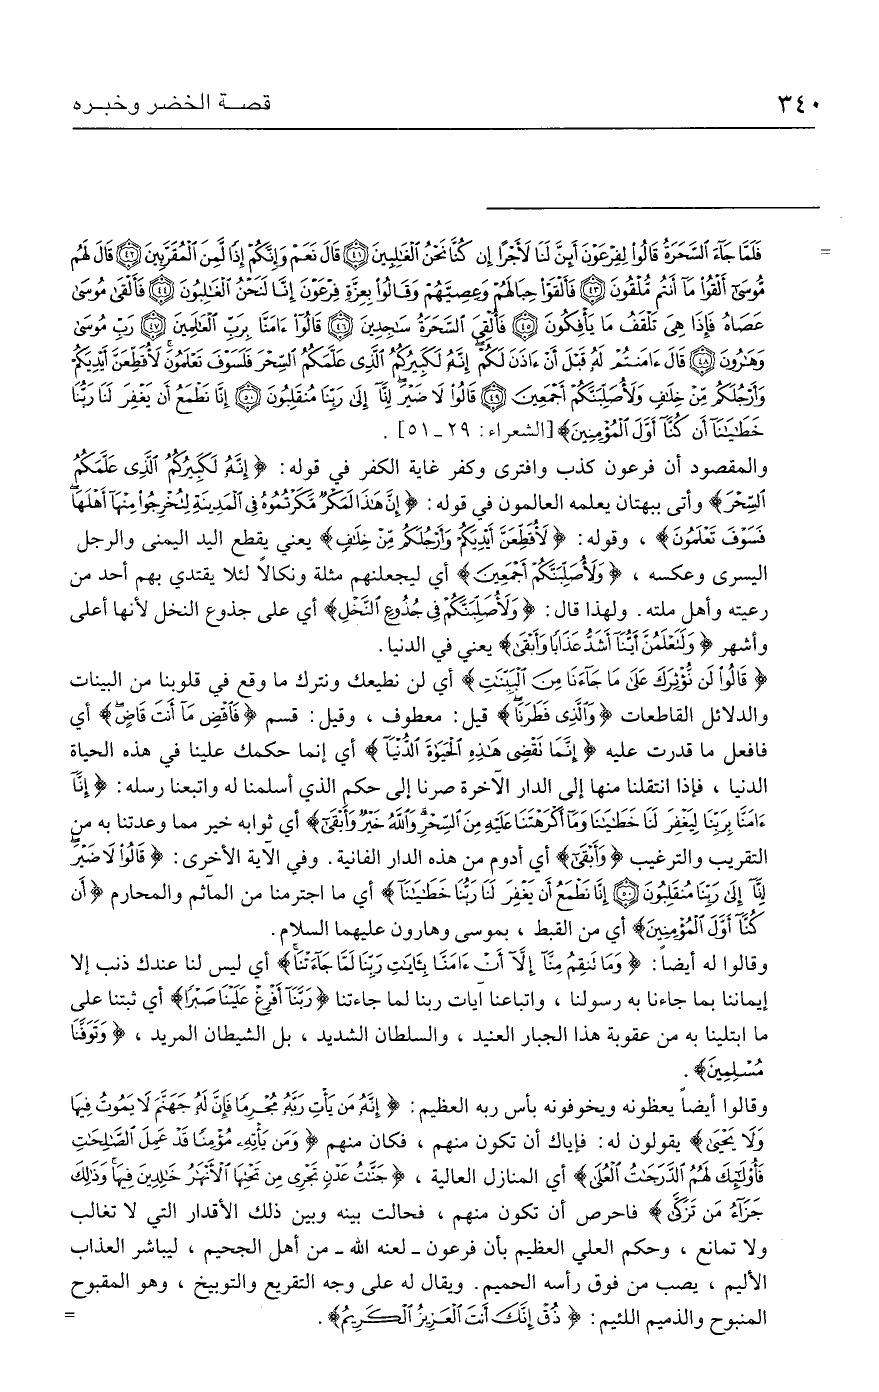 ٣٤٠ قصة الخضر وخبره
= فَلَمَّا جَآءَ ٱلسَّحَرَةُ قَالُوا۟ لِفِرْعَوْنَ أَئِنَّ لَنَا لَأَجْرًا إِن كُنَّا نَحْنُ ٱلْغَٰلِبِينَ ﴿٤١﴾ قَالَ نَعَمْ وَإِنَّكُمْ إِذًا لَّمِنَ ٱلْمُقَرَّبِينَ ﴿٤٢﴾ قَالَ لَهُم
مُّوسَىٰٓ أَلْقُوا۟ مَآ أَنتُم مُّلْقُونَ ﴿٤٣﴾ فَأَلْقَوْا۟ حِبَالَهُمْ وَعِصِيَّهُمْ وَقَالُوا۟ بِعِزَّةِ فِرْعَوْنَ إِنَّا لَنَحْنُ ٱلْغَٰلِبُونَ ﴿٤٤﴾ فَأَلْقَىٰ مُوسَىٰ
عَصَاهُ فَإِذَا هِىَ تَلْقَفُ مَا يَأْفِكُونَ ﴿٤٥﴾ فَأُلْقِىَ ٱلسَّحَرَةُ سَٰجِدِينَ ﴿٤٦﴾ قَالُوٓا۟ ءَامَنَّا بِرَبِّ ٱلْعَٰلَمِينَ ﴿٤٧﴾ رَبِّ مُوسَىٰ
وَهَٰرُونَ ﴿٤٨﴾ قَالَ ءَامَنتُمْ لَهُۥ قَبْلَ أَنْ ءَاذَنَ لَكُمْ إِنَّهُۥ لَكَبِيرُكُمُ ٱلَّذِى عَلَّمَكُمُ ٱلسِّحْرَ فَلَسَوْفَ تَعْلَمُونَ لَأُقَطِّعَنَّ أَيْدِيَكُمْ
وَأَرْجُلَكُم مِّنْ خِلَٰفٍ وَلَأُصَلِّبَنَّكُمْ أَجْمَعِينَ ﴿٤٩﴾ قَالُوا۟ لَا ضَيْرَ إِنَّآ إِلَىٰ رَبِّنَا مُنقَلِبُونَ ﴿٥٠﴾ إِنَّا نَطْمَعُ أَن يَغْفِرَ لَنَا رَبُّنَا
خَطَٰيَٰنَآ أَن كُنَّآ أَوَّلَ ٱلْمُؤْمِنِينَ﴾ [الشعراء: ٢٩ ـ ٥١] .
والمقصود أن فرعون كذب وافترى وكفر غاية الكفر في قوله: ﴿ إِنَّهُۥ لَكَبِيرُكُمُ ٱلَّذِى عَلَّمَكُمُ
ٱلسِّحْرَ﴾ وأتى ببهتان يعلمه العالمون في قوله: ﴿ إِنَّ هَٰذَا لَمَكْرٌ مَّكَرْتُمُوهُ فِى ٱلْمَدِينَةِ لِتُخْرِجُوا۟ مِنْهَآ أَهْلَهَا
فَسَوْفَ تَعْلَمُونَ﴾ ، وقوله: ﴿ لَأُقَطِّعَنَّ أَيْدِيَكُمْ وَأَرْجُلَكُم مِّنْ خِلَٰفٍ﴾ يعني يقطع اليد اليمنى والرجل
اليسرى وعكسه ، ﴿ وَلَأُصَلِّبَنَّكُمْ أَجْمَعِينَ﴾ أي ليجعلنهم مثلة ونكالاً لئلا يقتدي بهم أحد من
رعيته وأهل ملته. ولهذا قال: ﴿ وَلَأُصَلِّبَنَّكُمْ فِى جُذُوعِ ٱلنَّخْلِ﴾ أي على جذوع النخل لأنها أعلى
وأشهر ﴿ وَلَتَعْلَمُنَّ أَيُّنَآ أَشَدُّ عَذَابًا وَأَبْقَىٰ﴾ يعني في الدنيا.
﴿ قَالُوا۟ لَن نُّؤْثِرَكَ عَلَىٰ مَا جَآءَنَا مِنَ ٱلْبَيِّنَٰتِ ﴾ أي لن نطيعك ونترك ما وقع في قلوبنا من البينات
والدلائل القاطعات ﴿ وَٱلَّذِى فَطَرَنَا﴾ قيل: معطوف ، وقيل: قسم ﴿فَٱقْضِ مَآ أَنتَ قَاضٍ﴾ أي
فافعل ما قدرت عليه ﴿ إِنَّمَا نَقْضِى هَٰذِهِ ٱلْحَيَوٰةَ ٱلدُّنْيَآ ﴾ أي إنما حكمك علينا في هذه الحياة
الدنيا ، فإذا انتقلنا منها إلى الدار الآخرة صرنا إلى حكم الذي أسلمنا له واتبعنا رسله: ﴿ إِنَّآ
ءَامَنَّا بِرَبِّنَا لِيَغْفِرَ لَنَا خَطَٰيَٰنَا وَمَآ أَكْرَهْتَنَا عَلَيْهِ مِنَ ٱلسِّحْرِ وَٱللَّهُ خَيْرٌ وَأَبْقَىٰٓ﴾ أي ثوابه خير مما وعدتنا به من
التقريب والترغيب ﴿وَأَبْقَىٰٓ﴾ أي أدوم من هذه الدار الفانية. وفي الآية الأخرى: ﴿ قَالُوا۟ لَا ضَيْرَ
إِنَّآ إِلَىٰ رَبِّنَا مُنقَلِبُونَ ﴿٥٠﴾ إِنَّا نَطْمَعُ أَن يَغْفِرَ لَنَا رَبُّنَا خَطَٰيَٰنَآ ﴾ أي ما اجترمنا من المآثم والمحارم ﴿أَن
كُنَّآ أَوَّلَ ٱلْمُؤْمِنِينَ﴾ أي من القبط ، بموسى وهارون عليهما السلام.
وقالوا له أيضاً: ﴿ وَمَا تَنقِمُ مِنَّآ إِلَّآ أَنْ ءَامَنَّا بِـَٔايَٰتِ رَبِّنَا لَمَّا جَآءَتْنَا﴾ أي ليس لنا عندك ذنب إلا
إيماننا بما جاءنا به رسولنا ، واتباعنا آيات ربنا لما جاءتنا ﴿رَبَّنَآ أَفْرِغْ عَلَيْنَا صَبْرًا﴾ أي ثبتنا على
ما ابتلينا به من عقوبة هذا الجبار العنيد ، والسلطان الشديد ، بل الشيطان المريد ، ﴿ وَتَوَفَّنَا
مُسْلِمِينَ﴾ .
وقالوا أيضاً يعظونه ويخوفونه بأس ربه العظيم: ﴿ إِنَّهُۥ مَن يَأْتِ رَبَّهُۥ مُجْرِمًا فَإِنَّ لَهُۥ جَهَنَّمَ لَا يَمُوتُ فِيهَا
وَلَا يَحْيَىٰ﴾ يقولون له: فإياك أن تكون منهم ، فكان منهم ﴿ وَمَن يَأْتِهِۦ مُؤْمِنًا قَدْ عَمِلَ ٱلصَّٰلِحَٰتِ
فَأُو۟لَٰٓئِكَ لَهُمُ ٱلدَّرَجَٰتُ ٱلْعُلَىٰ﴾ أي المنازل العالية ، ﴿جَنَّٰتُ عَدْنٍ تَجْرِى مِن تَحْتِهَا ٱلْأَنْهَٰرُ خَٰلِدِينَ فِيهَا وَذَٰلِكَ
جَزَآءُ مَن تَزَكَّىٰ ﴾ فاحرص أن تكون منهم ، فحالت بينه وبين ذلك الأقدار التي لا تغالب
ولا تمانع ، وحكم العلي العظيم بأن فرعون ـ لعنه الله ـ من أهل الجحيم ، ليباشر العذاب
الأليم ، يصب من فوق رأسه الحميم. ويقال له على وجه التقريع والتوبيخ ، وهو المقبوح
المنبوح والذميم اللئيم: ﴿ ذُقْ إِنَّكَ أَنتَ ٱلْعَزِيزُ ٱلْكَرِيمُ﴾. =